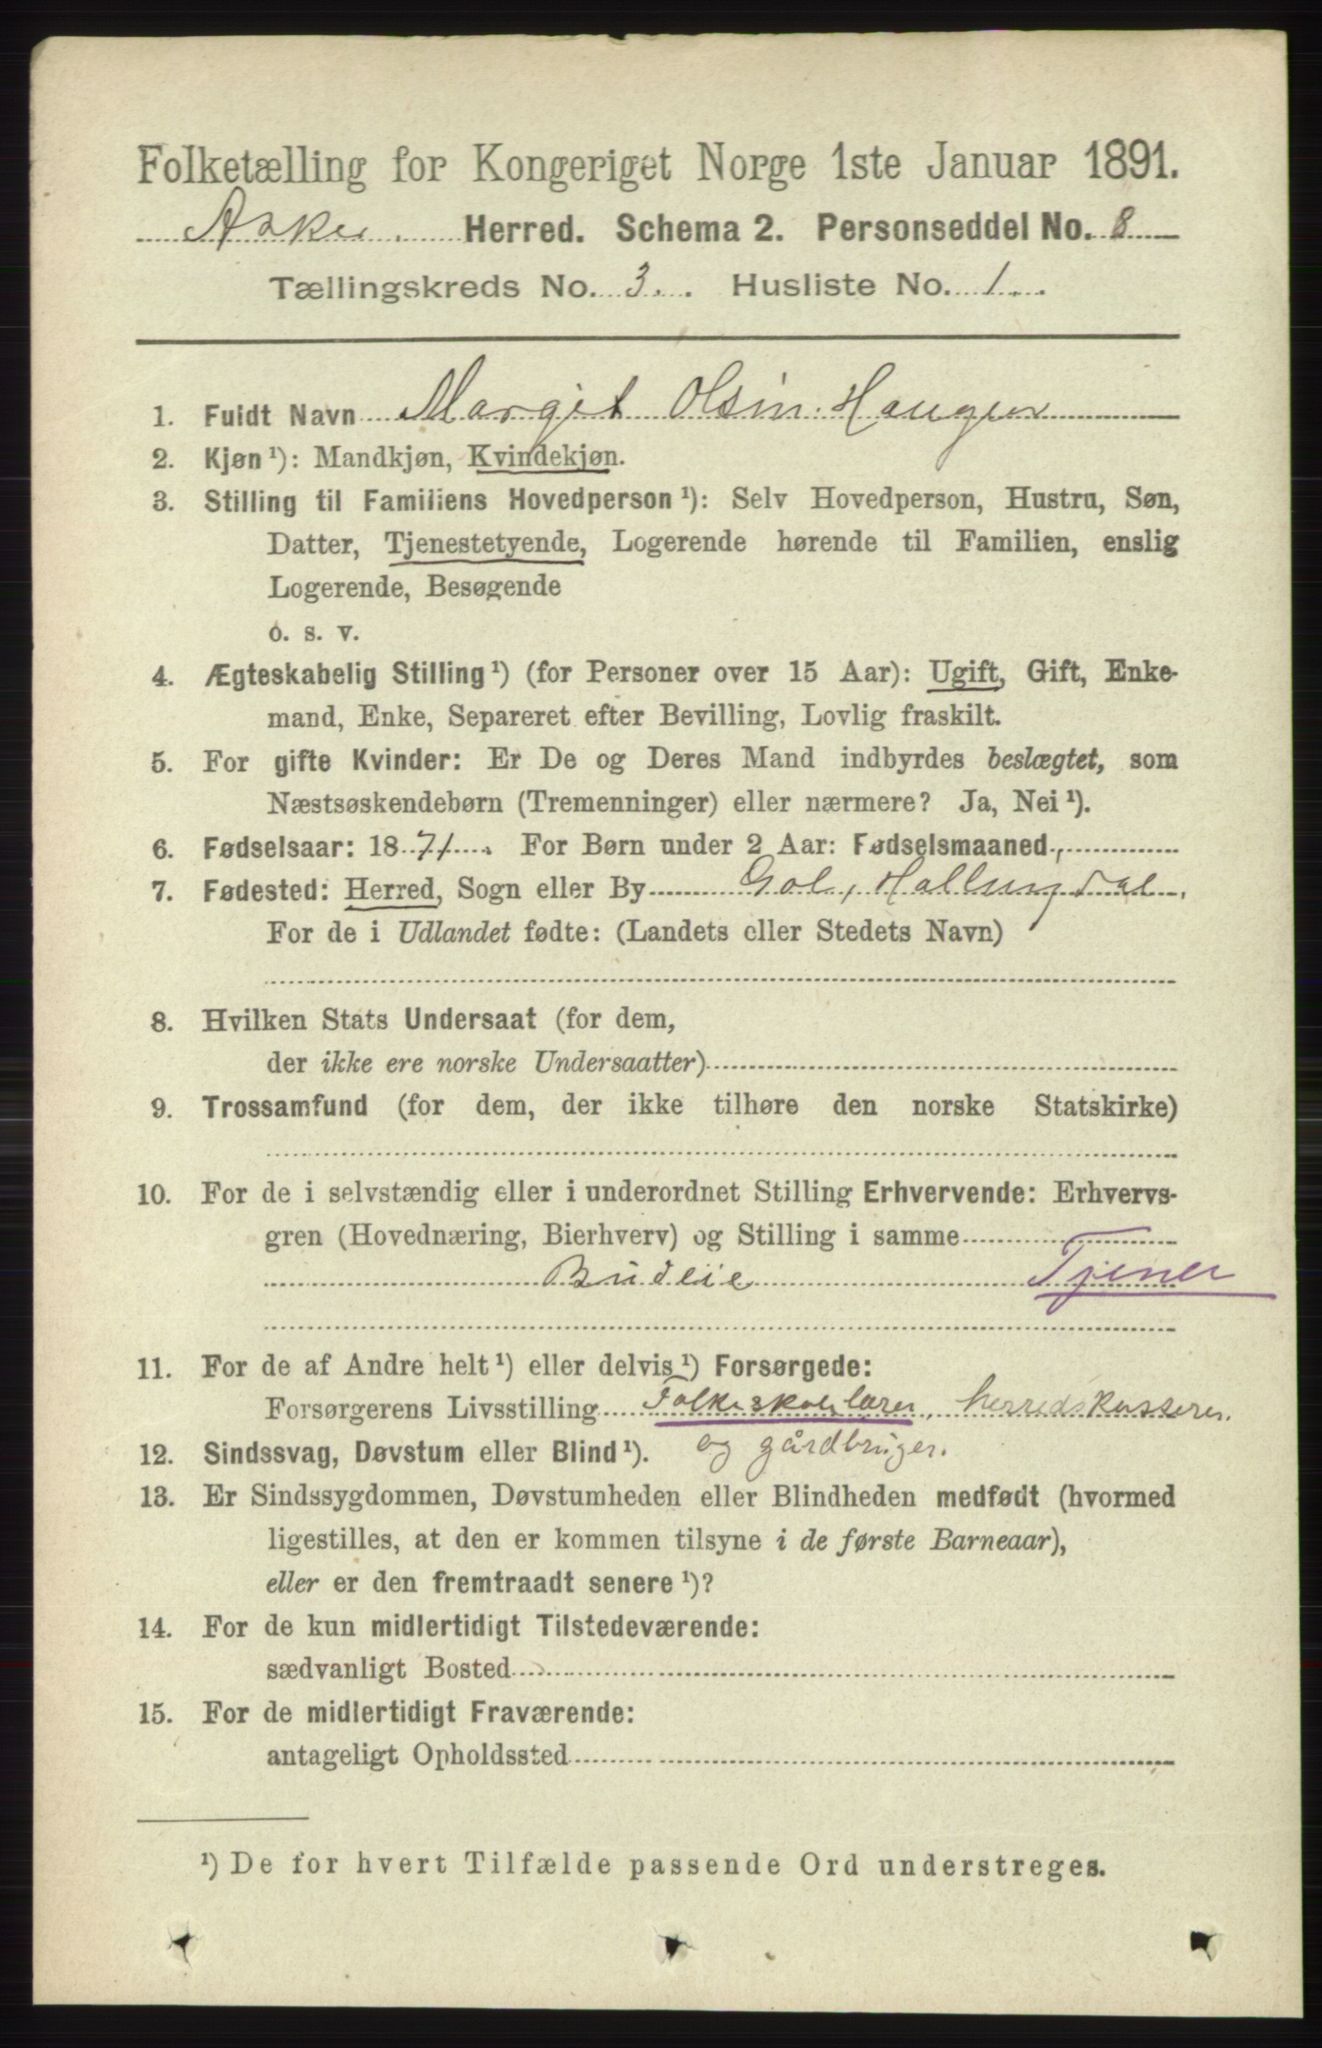 Folketælling for Kongeriget Norge 1ste Januar 1891.
Asker. Herred. Schema 2. Personseddel No. 8
Tællingskreds No. 3. Husliste No. 1.
1. Fuldt Navn Margit Olsin Haugen
2. Kjøn ¹): Mandkjøn, Kvindekjøn.
3. Stilling til Familiens Hovedperson ¹): Selv Hovedperson, Hustru, Søn,
Datter, Tjenestetyende, Logerende hørende til Familien, enslig
Logerende, Besøgende
o. s. v.
4. Ægteskabelig Stilling ¹) (for Personer over 15 Aar): Ugift, Gift, Enke-
mand, Enke, Separeret efter Bevilling, Lovlig fraskilt.
5. For gifte Kvinder: Er De og Deres Mand indbyrdes beslægtet, som
Næstsøskendebørn (Tremenninger) eller nærmere? Ja, Nei ¹).
6. Fødselsaar: 1871. For Børn under 2 Aar: Fødselsmaaned
7. Fødested: Herred, Sogn eller By Gol, Hallingdal.
For de i Udlandet fødte: (Landets eller Stedets Navn)
8. Hvilken Stats Undersaat (for dem,
der ikke ere norske Undersaatter)
9. Trossamfund (for dem, der ikke tilhøre den norske Statskirke)
10. For de i selvstændig eller i underordnet Stilling Erhvervende: Erhvervs-
gren (Hovednæring, Bierhverv) og Stilling i samme
Budeie Tjener
11. For de af Andre helt ¹) eller delvis ¹) Forsørgede:
Forsørgerens Livsstilling Folkeskolelærer, herredskasserer.
12. Sindssvag, Døvstum eller Blind ¹). og gårdbruger.
13. Er Sindssygdommen, Døvstumheden eller Blindheden medfødt (hvormed
ligestilles, at den er kommen tilsyne i de første Barneaar),
eller er den fremtraadt senere ¹)?
14. For de kun midlertidigt Tilstedeværende:
sædvanligt Bosted
15. For de midlertidigt Fraværende:
antageligt Opholdssted
¹) De for hvert Tilfælde passende Ord understreges.